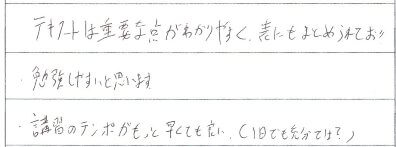 テキストは重要な点がわかりやすく、表にもまとめられており
・勉強しやすいと思います
・講習のテンポがもっと早くても良い、(1日でも充分では?)